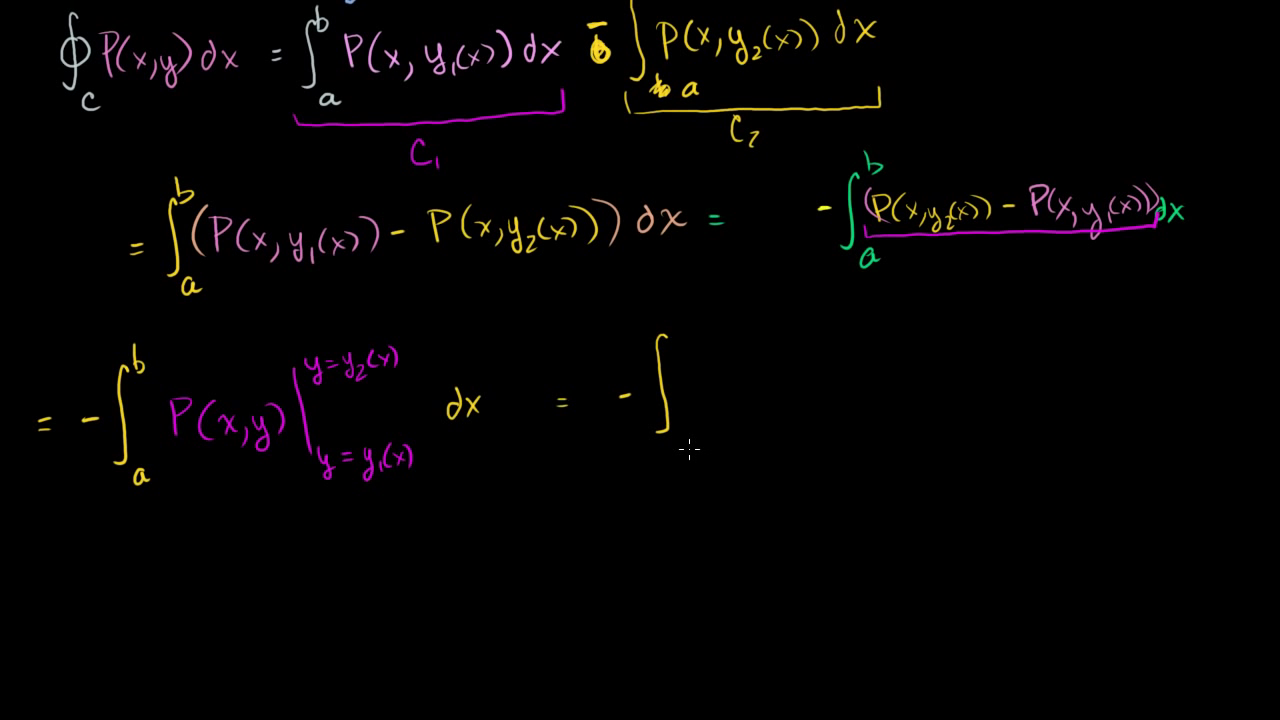 ∮_C P(x,y) dx = ∫_a^b P(x, y₁(x)) dx - ∫_a P(x, y₂(x)) dx
C₁ C₂
= ∫_a^b (P(x, y₁(x)) - P(x, y₂(x))) dx = - ∫_a^b (P(x, y₂(x)) - P(x, y₁(x))) dx
= - ∫_a^b P(x,y) |_{y = y₁(x)}^{y = y₂(x)} dx = - ∫